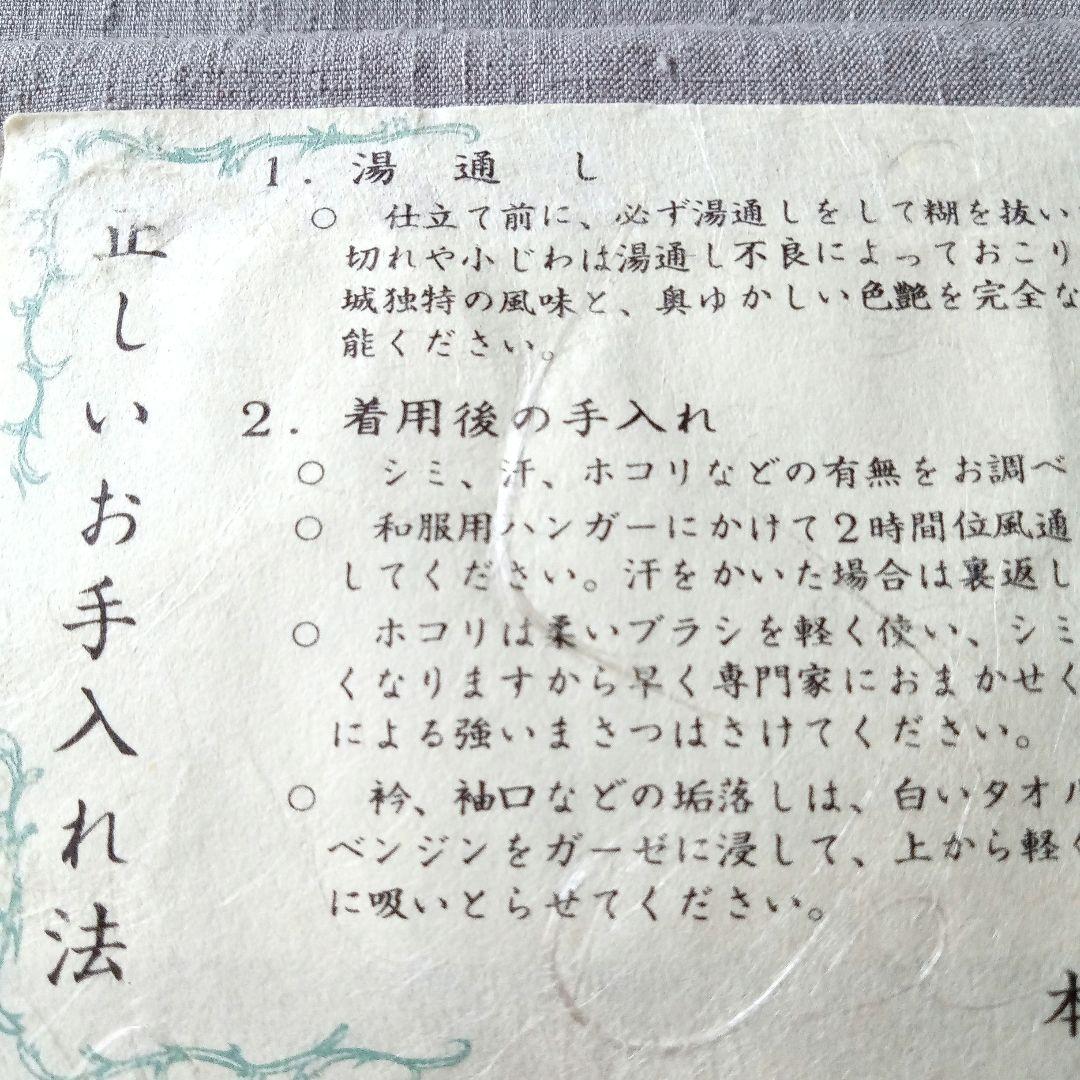 正しいお手入れ法
1. 湯通し
○ 仕立て前に、必ず湯通しをして糊を抜い
切れや小じわは湯通し不良によっておこり
城独特の風味と、奥ゆかしい色艶を完全な
能ください。
2. 着用後の手入れ
○ シミ、汗、ホコリなどの有無をお調べ
○ 和服用ハンガーにかけて2時間位風通
してください。汗をかいた場合は裏返し
○ ホコリは柔いブラシを軽く使い、シミ
くなりますから早く専門家におまかせく
による強いまさつはさけてください。
○ 衿、袖口などの垢落しは、白いタオル
ベンジンをガーゼに浸して、上から軽く
に吸いとらせてください。
本